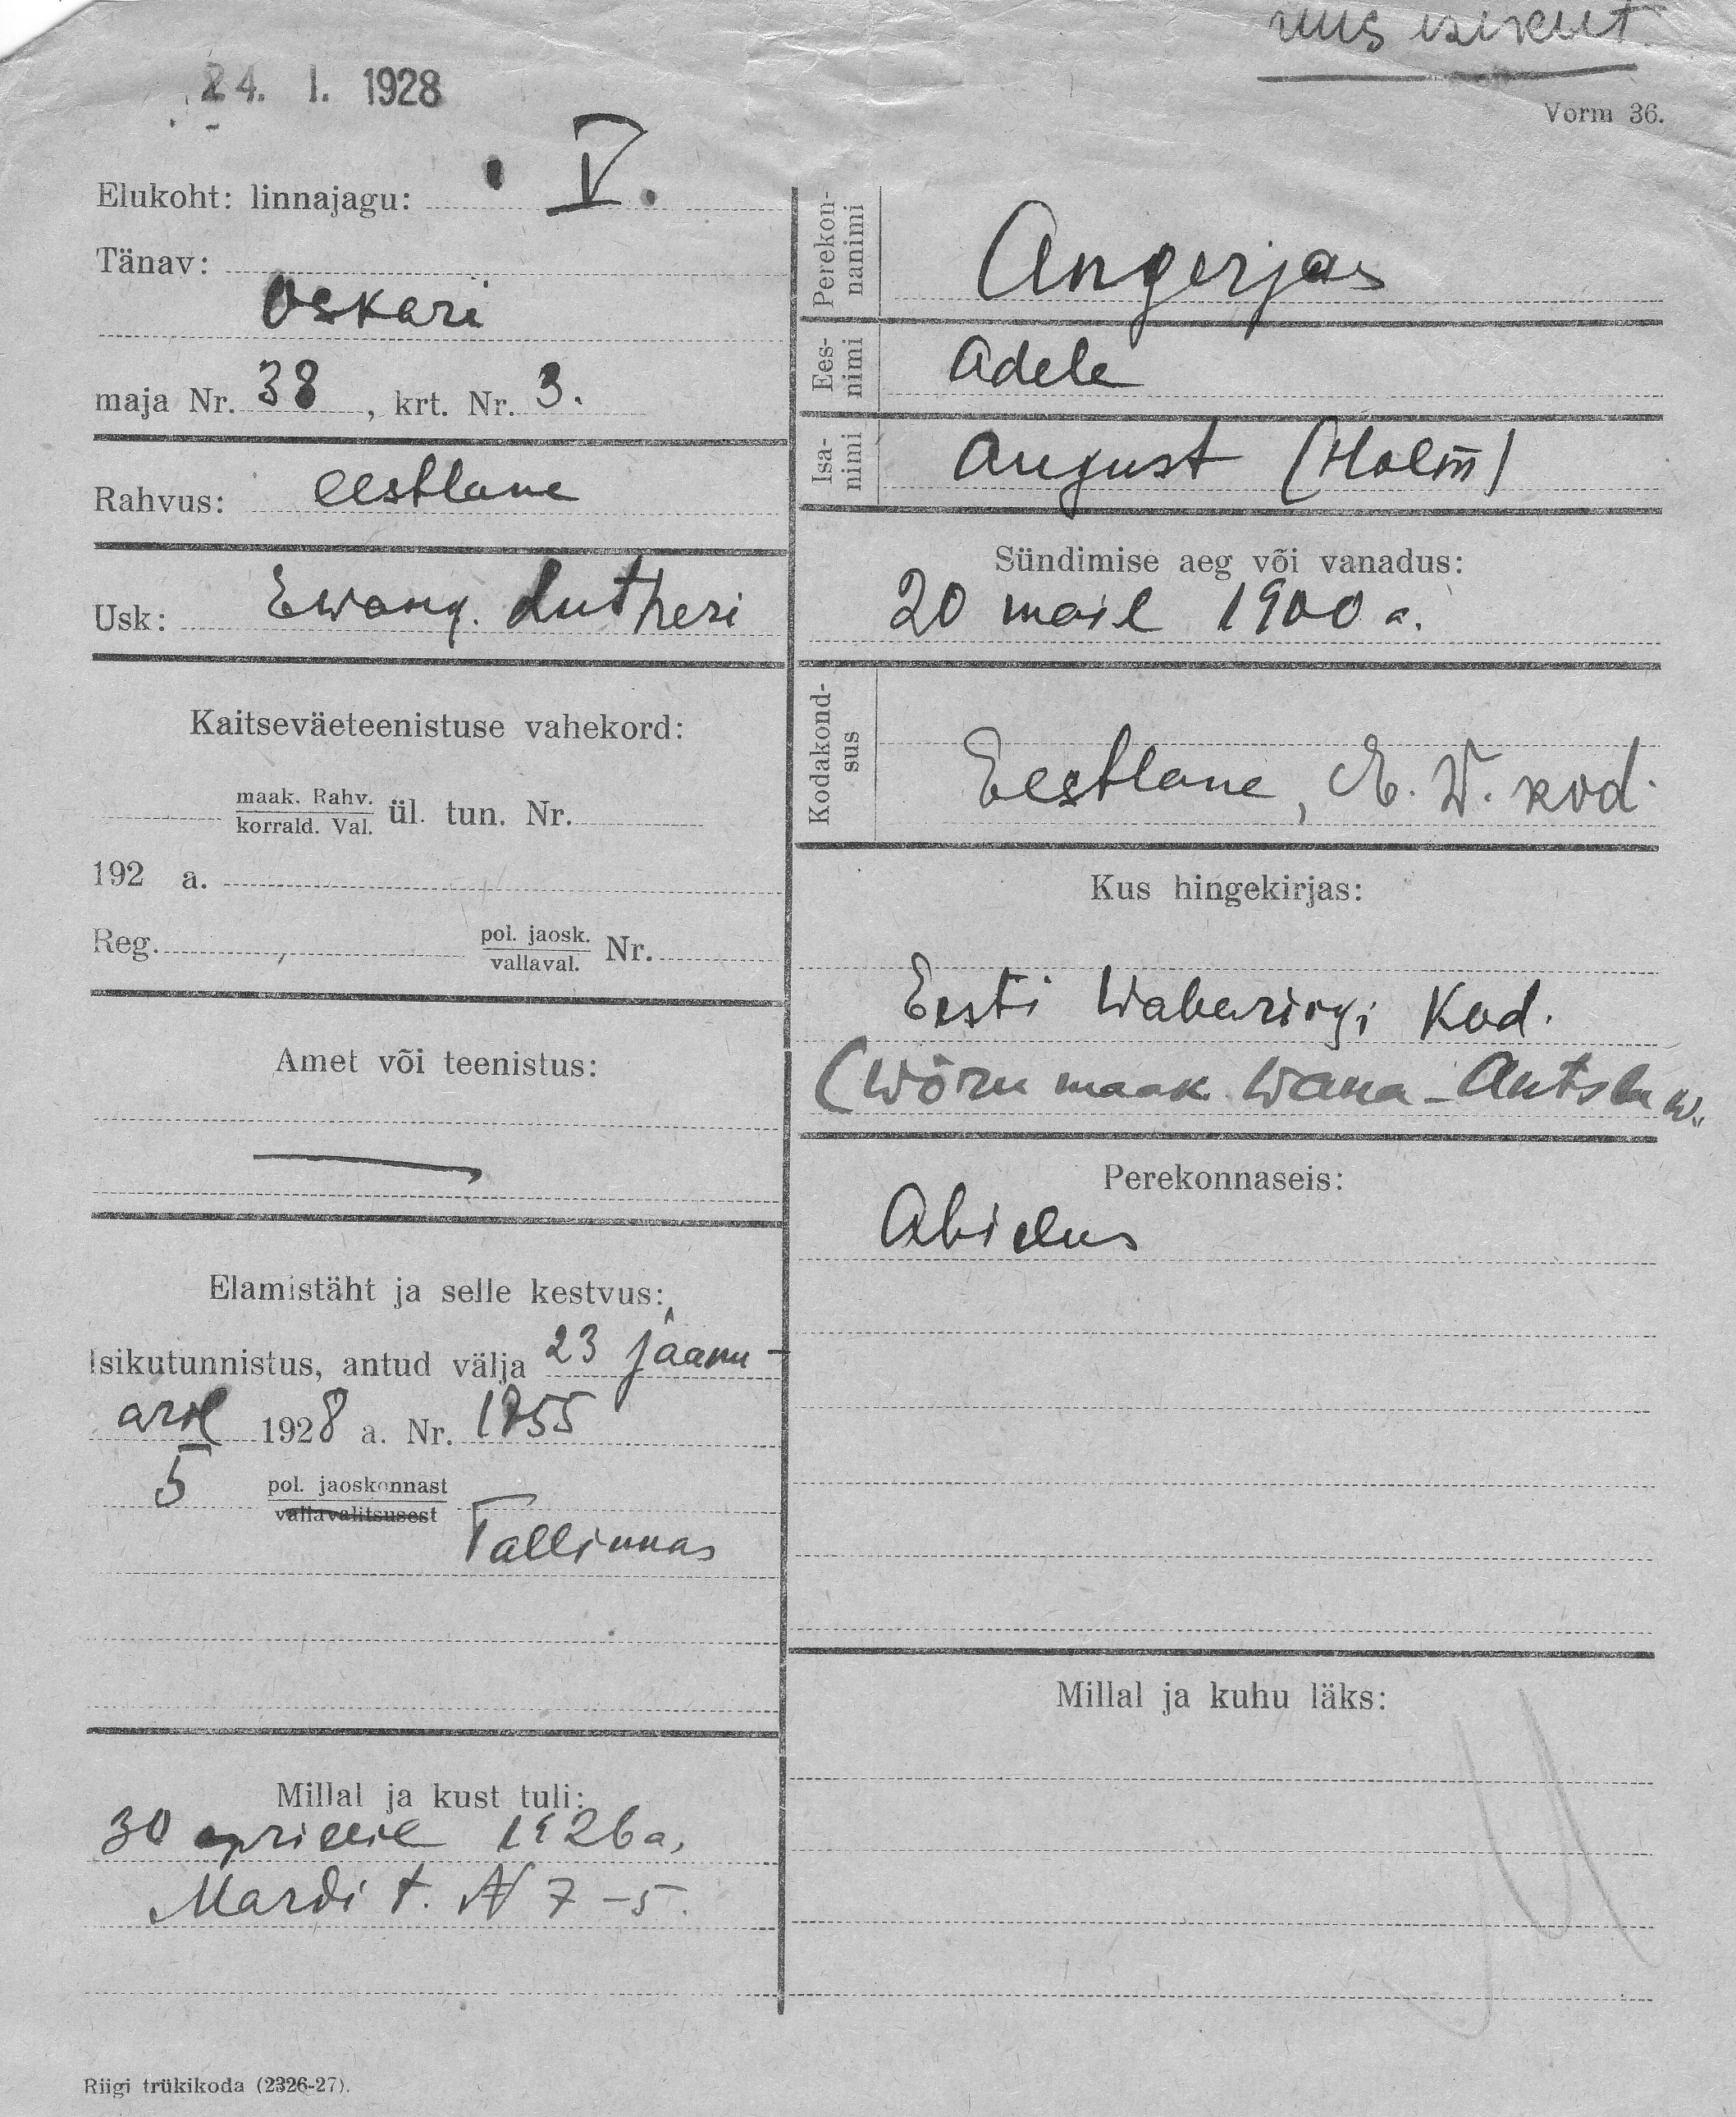 uus isikut.
24. I. 1928
Vorm 36.
Elukoht: linnajagu: V.
Tänav:
Oskari
maja Nr. 38, krt. Nr. 3.
Rahvus: eestlane
Usk: Ewang. Lutheri
Kaitseväeteenistuse vahekord:
maak. Rahv.
korrald. Val. ül. tun. Nr.
192 a.
Reg. , pol. jaosk.
vallaval. Nr.
Amet või teenistus:
—
Elamistäht ja selle kestvus:
Isikutunnistus, antud välja 23 jaanu-
aril 1928 a. Nr. 1855
5 pol. jaoskonnast
vallavalitsusest
Tallinnas
Millal ja kust tuli:
30 aprillil 1926 a,
Mardi t. N 7-5.
Perekon-
nanimi
Angerjas
Ees-
nimi
Adele
Isa-
nimi
August (Holm)
Sündimise aeg või vanadus:
20 mail 1900 a.
Kodakond-
sus
Eestlane, E. W. kod.
Kus hingekirjas:
Eesti Wabariigi Kod.
(Wõru maak. Wana-Antsla w.
Perekonnaseis:
Abielus
Millal ja kuhu läks:
Riigi trükikoda (2326-27).